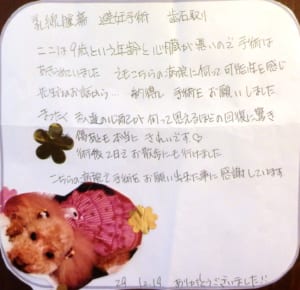 乳腺腫瘍 避妊手術 歯石取り
ここは9歳という年齢と心臓が悪いので手術は
あきらめていました でもこちらの病院に伺って可能性を感じ
お話から… 納得して手術をお願いしました
まったく 私達の心配が何って思えるほどの回復に驚き
傷痕も本当に きれいです♡
術後2日でお散歩にも行けました
こちらの病院で手術をお願い出来た事に感謝しています
29.12.19 ありがとうございました